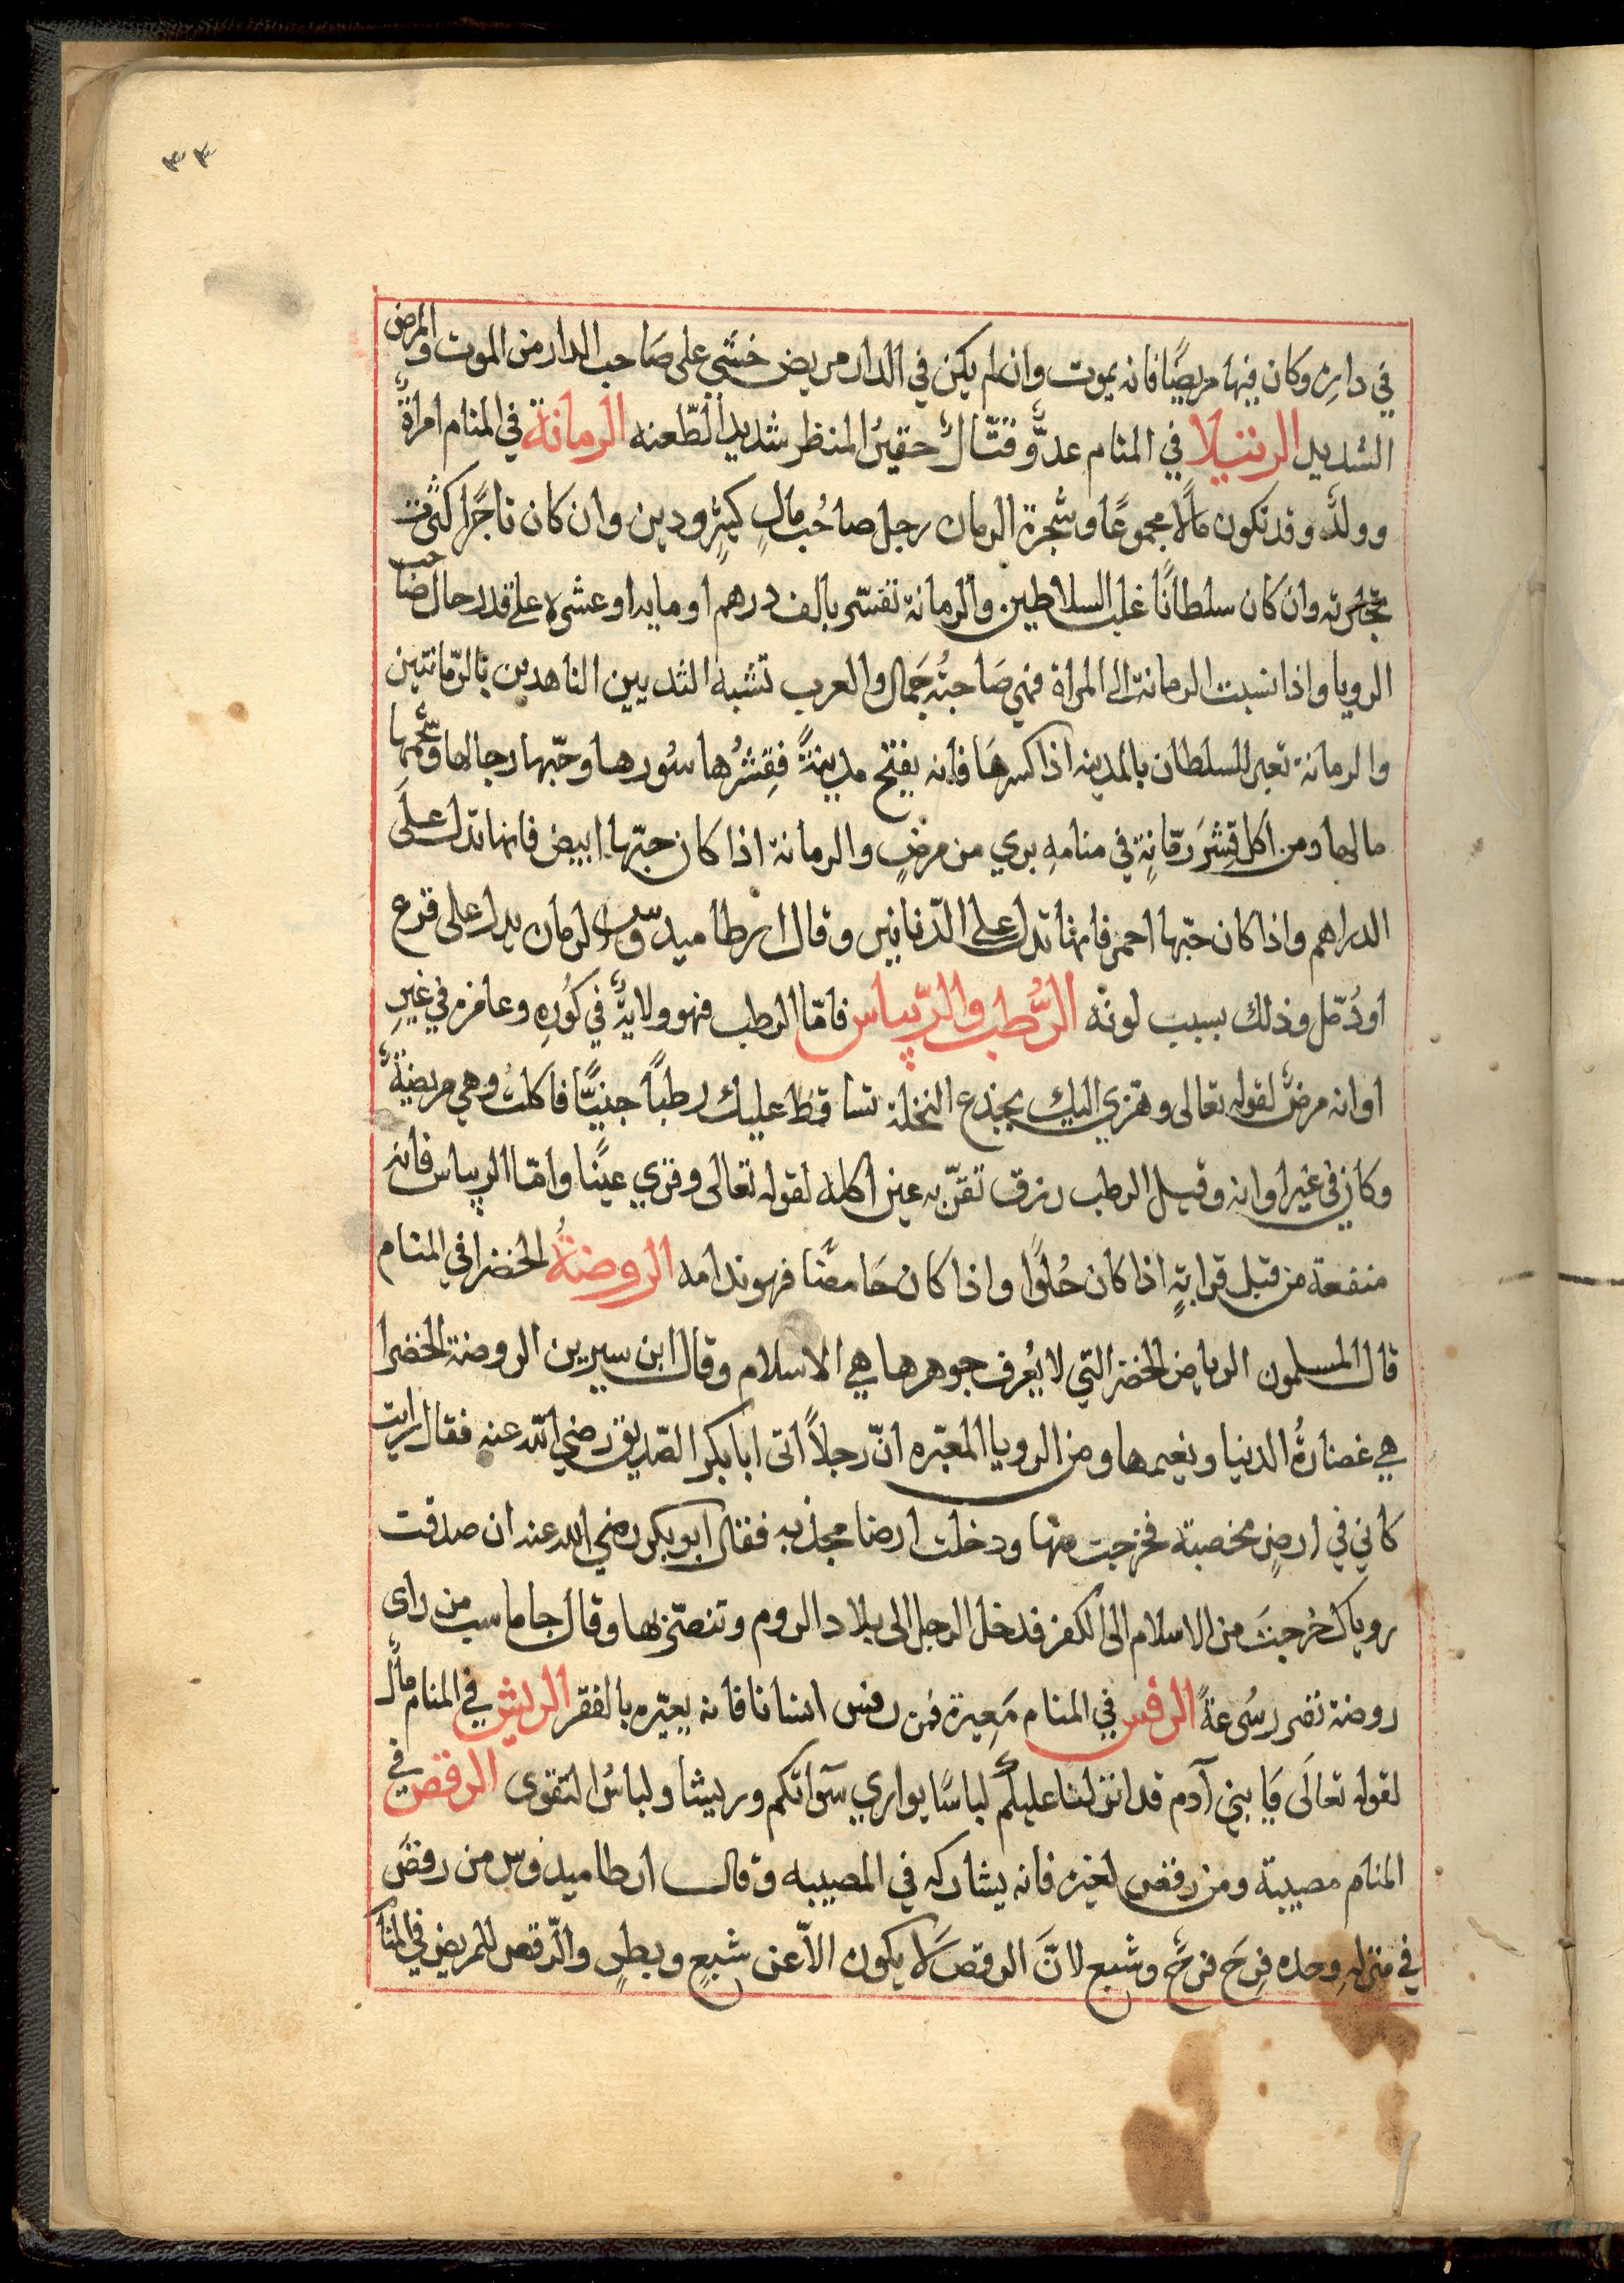 ٣٣
في داره وكان فيها مريضًا فانه يموت وان لم يكن في الدار مريض خشي على صَاحب الدار من الموت والمرض
الشديد الرتيلا في المنام عدوٌّ قتّالٌ حقيرُ المنظر شديد الطّعنه الرمانة في المنام امراةٌ
وولدٌ وقد تكون مالًا مجموعًا وشجرة الرمان رجل صاحُب مَالٍ كثيرٍ ودين وان كان تاجرًا كثرت
تجارته وان كان سلطانًا غلب السلاطين والرمانة تفسّر بالف درهم او مايه او عشره على قدر حال صَاحب
الرويا واذا نسبت الرمانة الى المراة فهي صَاحبةُ جَمال والعرب تشبه الثديين الناهدين بالرّمانتين
والرمانة تعبر للسلطان بالمدينه اذا كسرهَا فانه يفتح مدينةً فقِشرُها سُورها وحبّها رجالها وشحمها
مالها ومن اكل قِشرَ رمّانةٍ في منامهِ بري من مرضٍ والرمانة اذا كان حبّها ابيض فانها تدل علَى
الدراهم واذا كان حبّها احمر فانها تدل على الدّنانير وقال ارطاميدوس الرمان يدل على قرع
او دُمّل وذلك بسبب لونه الرُّطب والرّيباس فامّا الرطب فهو ولايةٌ في كُورهِ وعامره في غيرِ
اوانه مرضٌ لقوله تعالى وهزي اليك بجذع النخلة تساقط عليك رطباً جنيًّا فاكلت وهي مريضةٌ
وكان في غير اوانه وقيل الرطب رزق تقرّ به عين اكله لقوله تعالى وقري عينًا وامّا الريباس فانه
منفعة من قبل قرابةٍ اذا كان حُلوًا واذا كان حَامضًا فهو ندامه الروضةُ الخضرا في المنام
قال المسلمون الرياض الخضر التي لا يُعرف جوهرها هي الاسلام وقال ابن سيرين الروضة الخضرا
هي غضارةُ الدنيا ونعيمها ومن الرويا المعبّره انّ رجلاً اتى ابا بكر الصّديق رضي الله عنه فقال رايت
كاني في ارضٍ مخصبة فخرجت منها ودخلت ارضا مجدبه فقال ابو بكر رضي الله عنه ان صدقت
روياك خرجتَ من الاسلام الى الكفر فدخل الرجل الى بلاد الروم وتنصّر بها وقال جاماسب من راى
روضة نضر رسُرعةً الرفس في المنام مَعِيرة فمن رفس انسانا فانه يعيّره بالفقر الريش في المنام مالٌ
لقوله تعالَى يَا بني آدم قد انزلنا عليكم لباسًا يواري سَوآتكم وريشا ولباسُ التقوى الرقص في
المنام مصيبة ومن رقص لغيره فانه يشاركه في المصيبه وقال ارطاميدوس من رقصَ
في منزلهِ وحده فِرحَ فرحًا وشبع لانَّ الرقصَ لا يكون الاّ عن شبعٍ وبطرٍ والرّقص للمريض في المنا